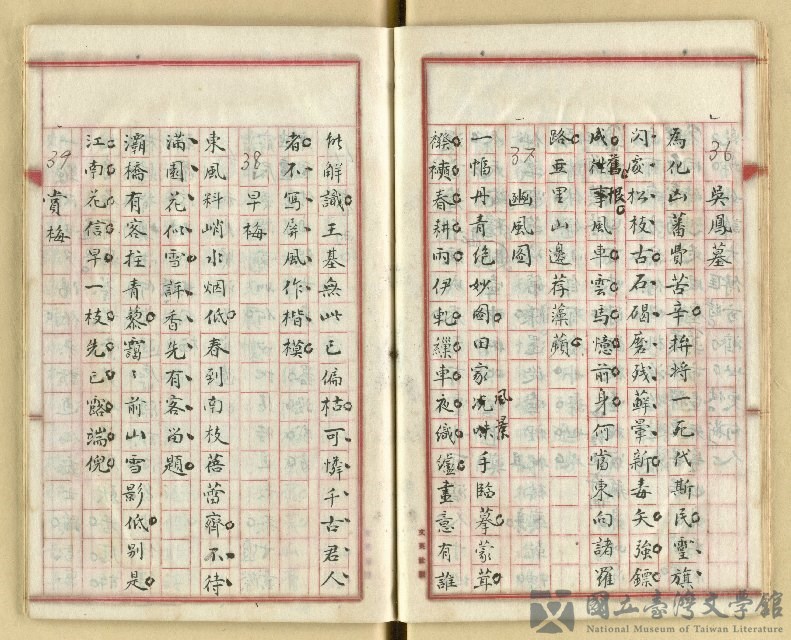 36 吳鳳墓
為化凶蕃費苦辛拚将一死代斯民靈旗
闪处松枝古石碣磨残蘚暈新毒矢強鏢
成舊恨風車雲馬憶前身何當東向諸羅
路亜里山邊荐藻蘋
37 豳風圖
一幅丹青绝妙圖田家風景手臨摹蒙茸
襏襫春耕雨伊軋繅車夜織爐畫意有誰
能解識王基無此已偏枯可憐千古君人
者不寫屏風作楷模
38 早梅
東風料峭水烟低春到南枝蓓蕾齊不待
滿園花似雪評香先有客留題
灞橋有客拄青藜靄〻前山雪影低別是
江南花信早一枝先已豁端倪
39 賞梅
國立臺灣文學館
National Museum of Taiwan Literature